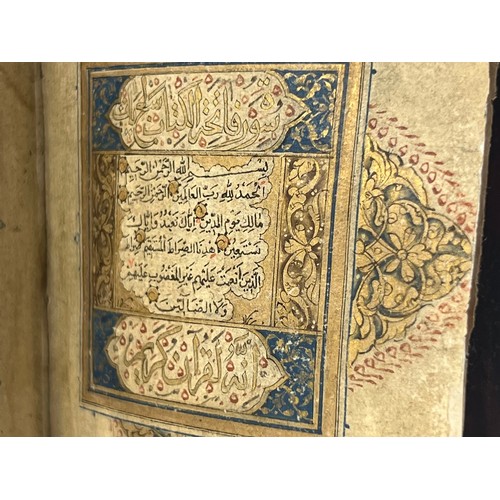 سورة فاتحة الكتاب
بسم الله الرحمن الرحيم
الحمد لله رب العالمين الرحمن الرحيم
مالك يوم الدين اياك نعبد واياك
نستعين اهدنا الصراط المستقيم صراط
الذين انعمت عليهم غير المغضوب عليهم
ولا الضالين
انه لقرآن كريم